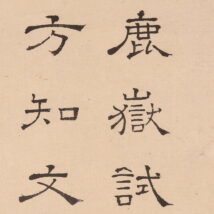 鹿嶽試
方知文